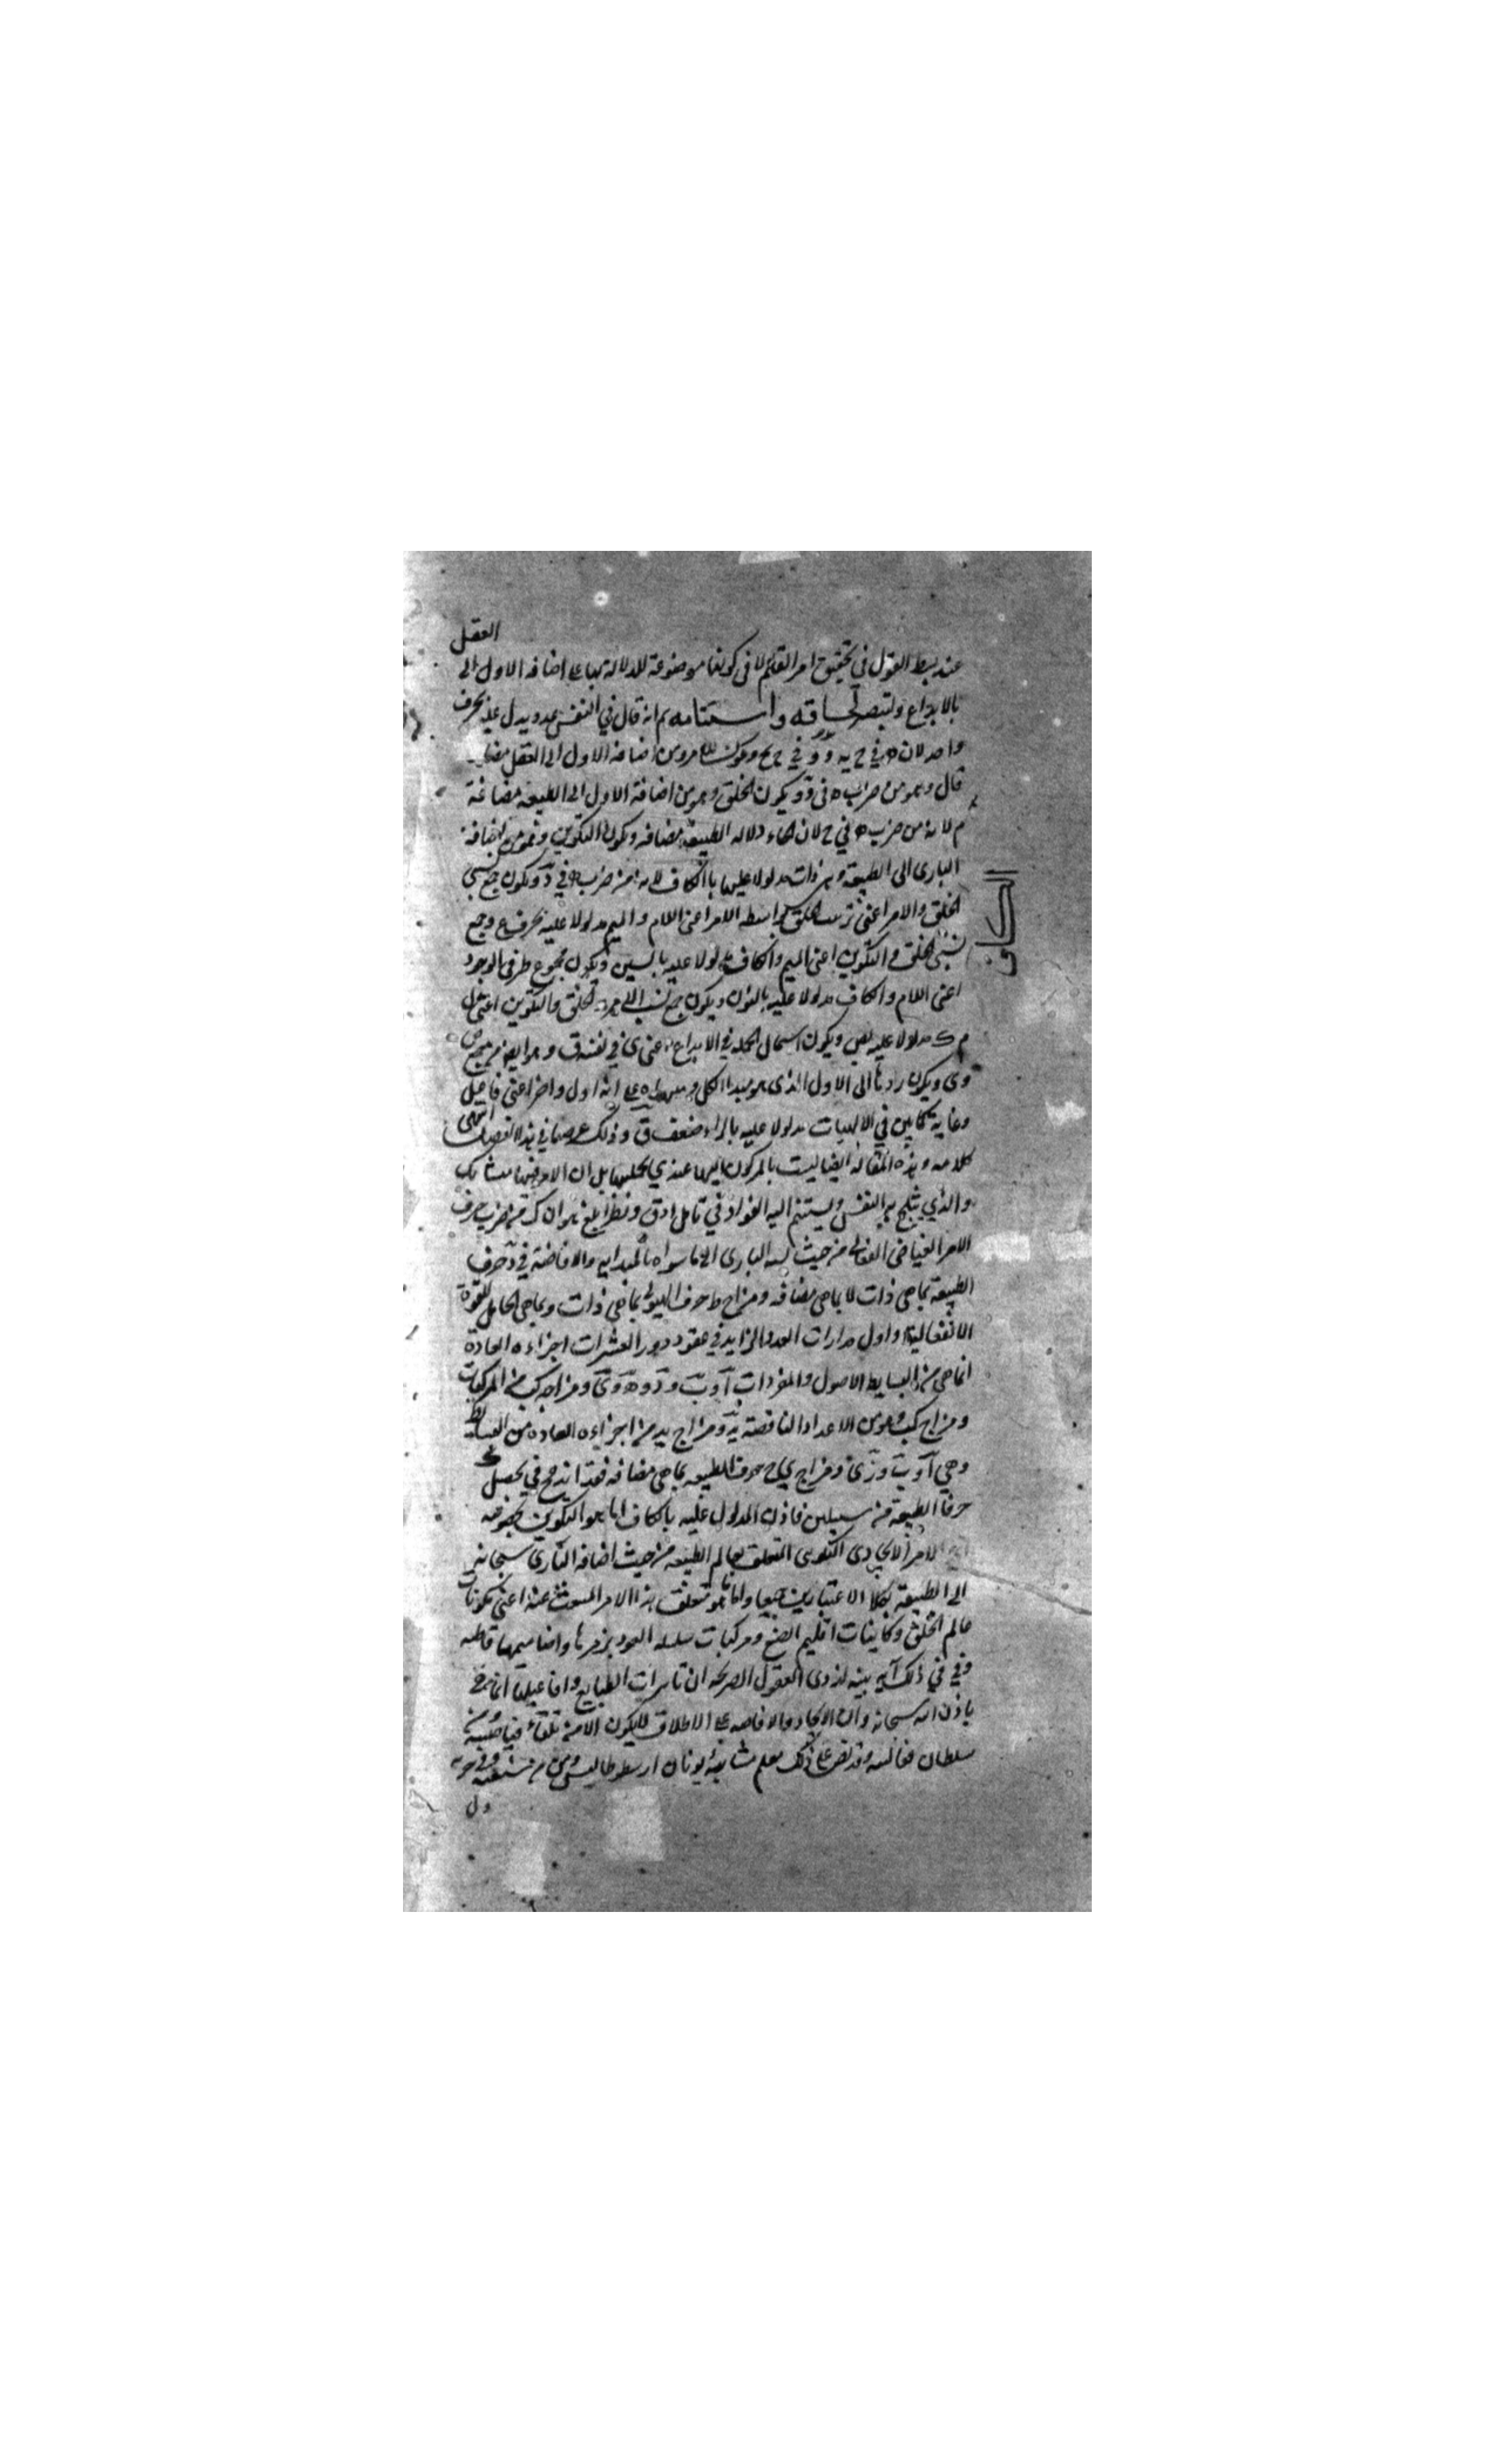 العقل
عند بسط القول في تحقيق امر القلم لا في كونها موضوعة للدلالة بها على اضافة الاول الى
بالابداع ولتبصر لحاقه واستتمامه ثم انه قال في النفس عدد يدل عليه بحرف
واحد لان ه في ح يه و و في ح مح ويكون الامر ومن اضافة الاول الى العقل مضا
قال وهو من ضرب ه في و ويكون الخلق وهو من اضافة الاول الى الطبيعة مضافة
م لانه من ضرب ه في ح لان الحاء دلالة الطبيعة مضافة ويكون التكوين وهو من اضافة
البارى الى الطبيعة وهي ذات مدلولا عليها بالكاف لانه من ضرب ه في د ويكون جمع نسبتي
الخلق والامر اعني ترتيب الخلق بواسطة الامر اعني اللام والميم مدلولا عليه بحرف ع وجمع
نسبتي الخلق والتكوين اعني الميم والكاف مدلولا عليه بالسين ويكون مجموع طرفي الوجود
اعني اللام والكاف مدلولا عليه بالنون ويكون جمع نسب الامر والخلق والتكوين اعني ل
م ك مدلولا عليه بص ويكون اشتمال الجملة في الابداع اعني ى في نفسه ق وهو ايضا من جمع ص
وى ويكون ردها الى الاول الذى هو مبدا الكل ومنتهاه على انه اول واخر اعني فاعل
وغاية كما بين في الالهيات مدلولا عليه بالراء ضعف ق وذلك غرضنا في هذا الفصل انتهى
كلامه وهذه المقالة ايضا ليست بالمركون اليها عندي بجملتها بل ان الامر فيها متشابك
والذي يثلج به النفس ويستنيم اليه الفؤاد في تامل ادق ونظر ابلغ هو ان ك من ضرب ه حرف
الامر الفياض الفعال من حيث نسبة البارى الى ما سواه بالمبدايه والافاضة في د حرف
الطبيعة بما هي ذات لا بما هي مضافه ومزاج ط حرف الهيولى بما هي ذات وبما هي الحامل للقوة
الانفعالية واول مدارات العدد الزايد في عقود دور العشرات اجزاءه العادة
انما هي من البسايط الاصول والمفردات آ وبَ ودَ وهَ ويَ ومزاجه كب من المركبات
ومزاج كب وهو من الاعداد الناقصة يد ومزاج يد من اجزاءه العادة من البسايط
وهي آ وبَ وزَ ى ومزاج ى ح حرف الطبيعة بما هي مضافه فقد اندمج في تحصيل ك
حرفا الطبيعة من سبيلين فاذن المدلول عليه بالكاف اما هو التكوين بخصوصه
اى الامر الايجادى التكويني المتعلق بعالم الطبيعة من حيث اضافة البارئ سبحانه
الى الطبيعة بكلا الاعتبارين جميعا واما ما هو متعلق هذا الامر المنبعث عنه اعني مكونات
عالم الخلق وكاينات اقليم الصنع ومركبات سلسلة العود بزمرها واقاسيمها قاطبة
وفي في ذلك آية بينة لذوى العقول الصريحه ان تاثيرات الطبايع وافاعيلها انما هي
باذن الله سبحانه وان الايجاد والافاضه على الاطلاق لا يكون الا من تلقاء فياضيته ومن
سلطان فعاليته وقد نص على ذلك معلم مشائية يونان ارسطوطاليس ومن في
ول
الكاف